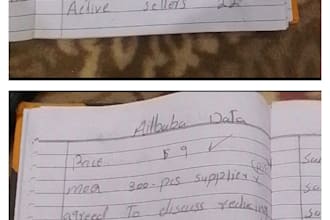 Active sellers 22
Alibaba Data
Price $9 ✓
MOQ 300-pcs supplier
agreed To discuss reducing
Sa
Sa